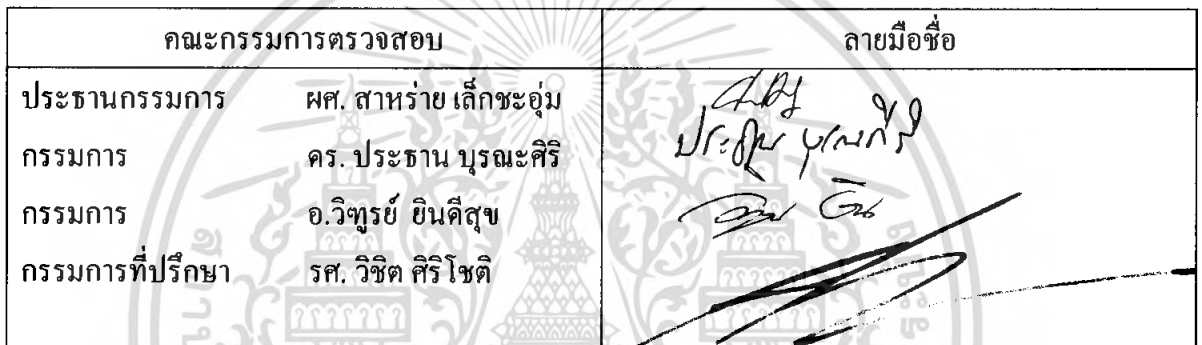 คณะกรรมการตรวจสอบ ลายมือชื่อ
ประธานกรรมการ ผศ. สาหร่าย เล็กชะอุ่ม
กรรมการ ดร. ประธาน บุรณะศิริ
ประธาน บุรณศิริ
กรรมการ อ.วิฑูรย์ ยินดีสุข
กรรมการที่ปรึกษา รศ. วิชิต ศิริโชติ